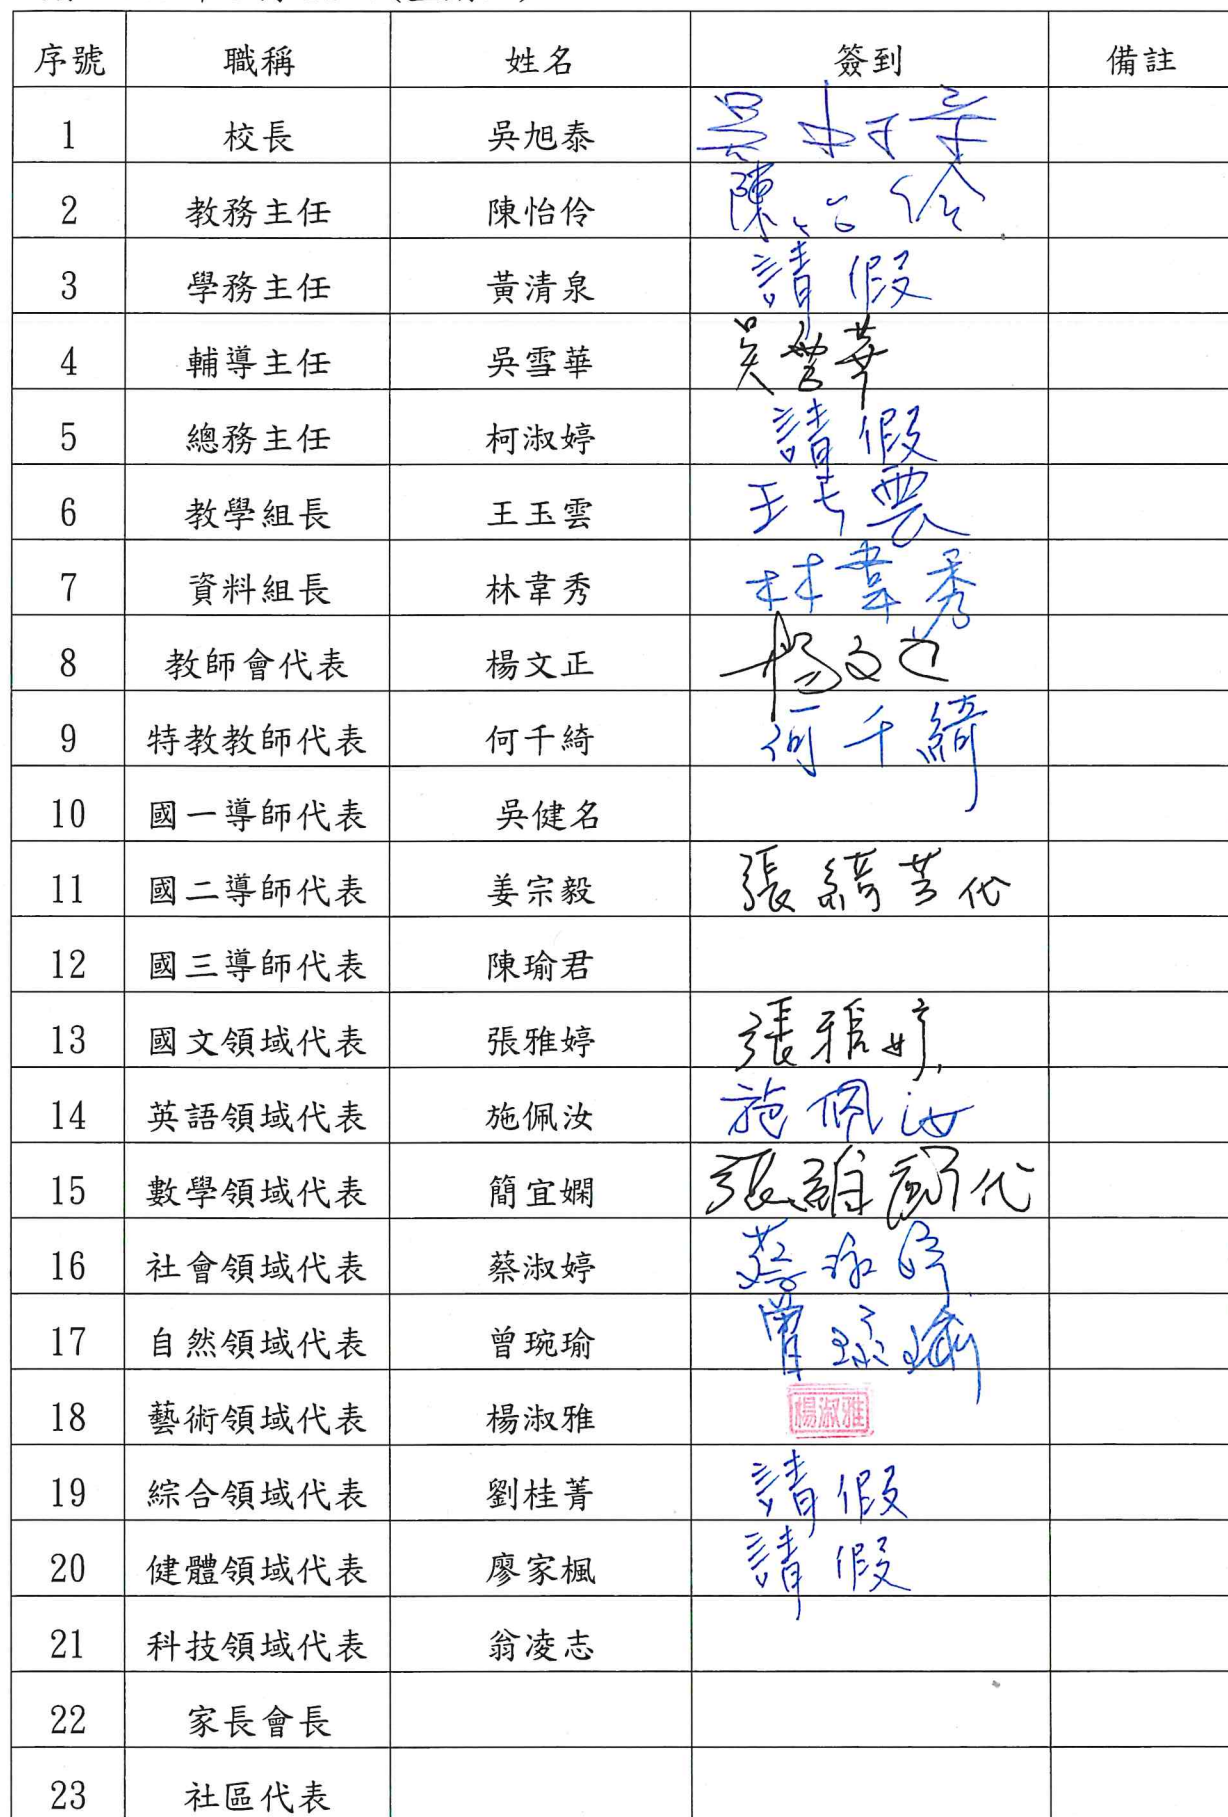 序號 職稱 姓名 簽到 備註
1 校長 吳旭泰
2 教務主任 陳怡伶 陳怡伶
3 學務主任 黃清泉 請假
4 輔導主任 吳雪華 吳雪華
5 總務主任 柯淑婷 請假
6 教學組長 王玉雲 王玉雲
7 資料組長 林韋秀 林韋秀
8 教師會代表 楊文正 楊文正
9 特教教師代表 何千綺 何千綺
10 國一導師代表 吳健名
11 國二導師代表 姜宗毅 張綺芸代
12 國三導師代表 陳瑜君
13 國文領域代表 張雅婷 張雅婷
14 英語領域代表 施佩汝 施佩汝
15 數學領域代表 簡宜嫻 張 代
16 社會領域代表 蔡淑婷 蔡淑婷
17 自然領域代表 曾琬瑜 曾琬瑜
18 藝術領域代表 楊淑雅 楊淑雅
19 綜合領域代表 劉桂菁 請假
20 健體領域代表 廖家楓 請假
21 科技領域代表 翁凌志
22 家長會長
23 社區代表